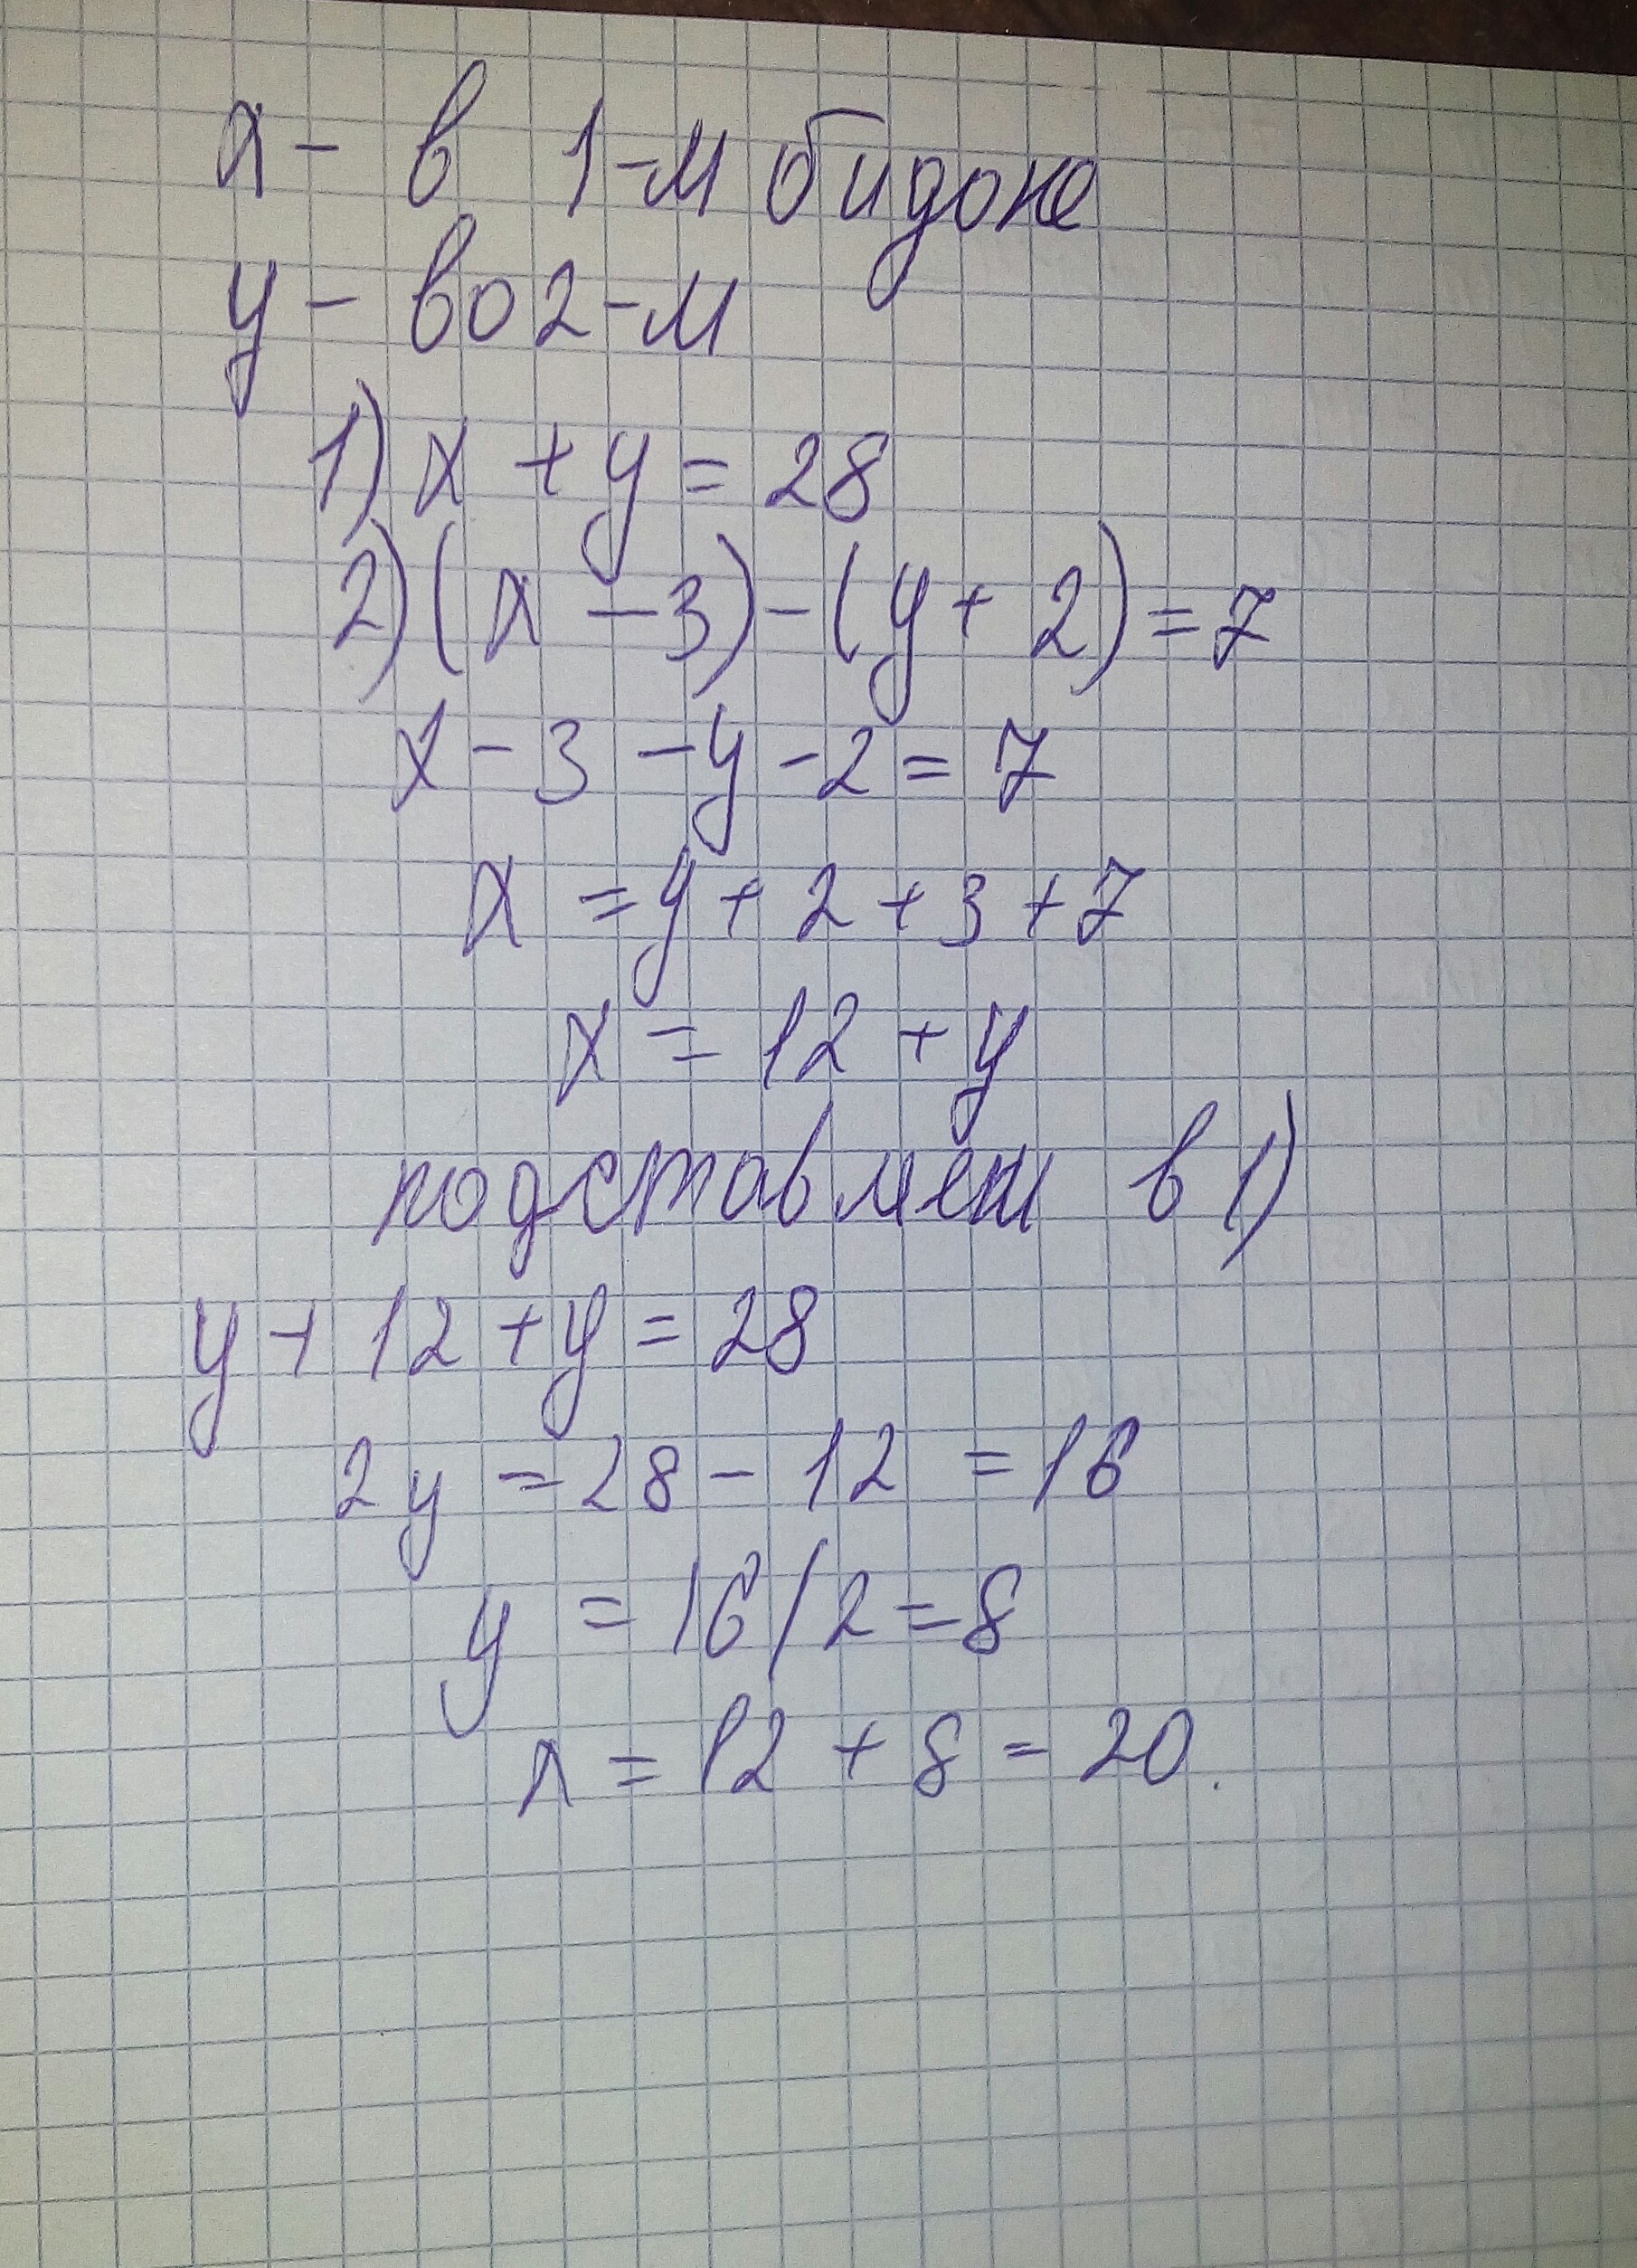 x - в 1-м бидоне
y - во 2-м
1) x + y = 28
2) (x - 3) - (y + 2) = 7
x - 3 - y - 2 = 7
x = y + 2 + 3 + 7
x = 12 + y
подставляем в 1)
y + 12 + y = 28
2y = 28 - 12 = 16
y = 16 / 2 = 8
x = 12 + 8 = 20.